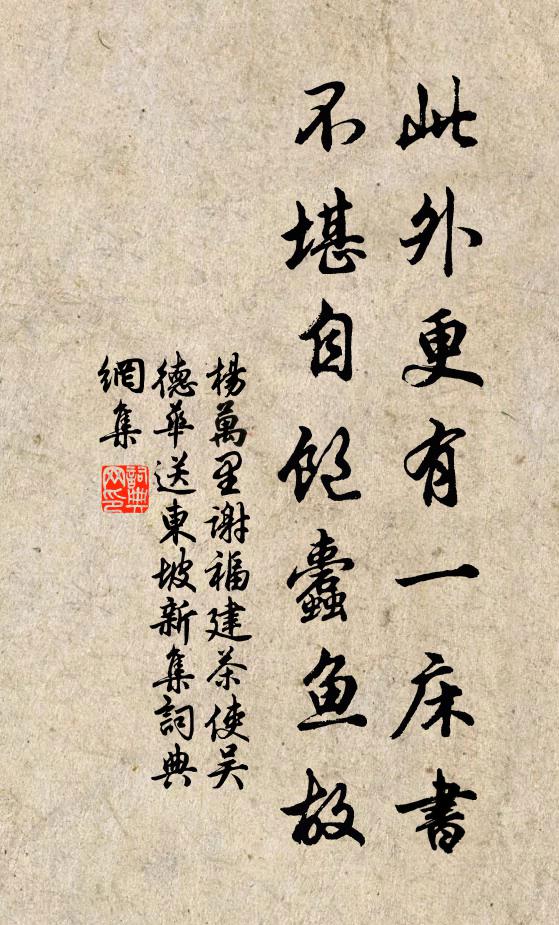 此外更有一床書
不堪自飽蠹魚故
楊萬里謝福建茶使吳
德華送東坡新集詞典
網集
詞典
网印